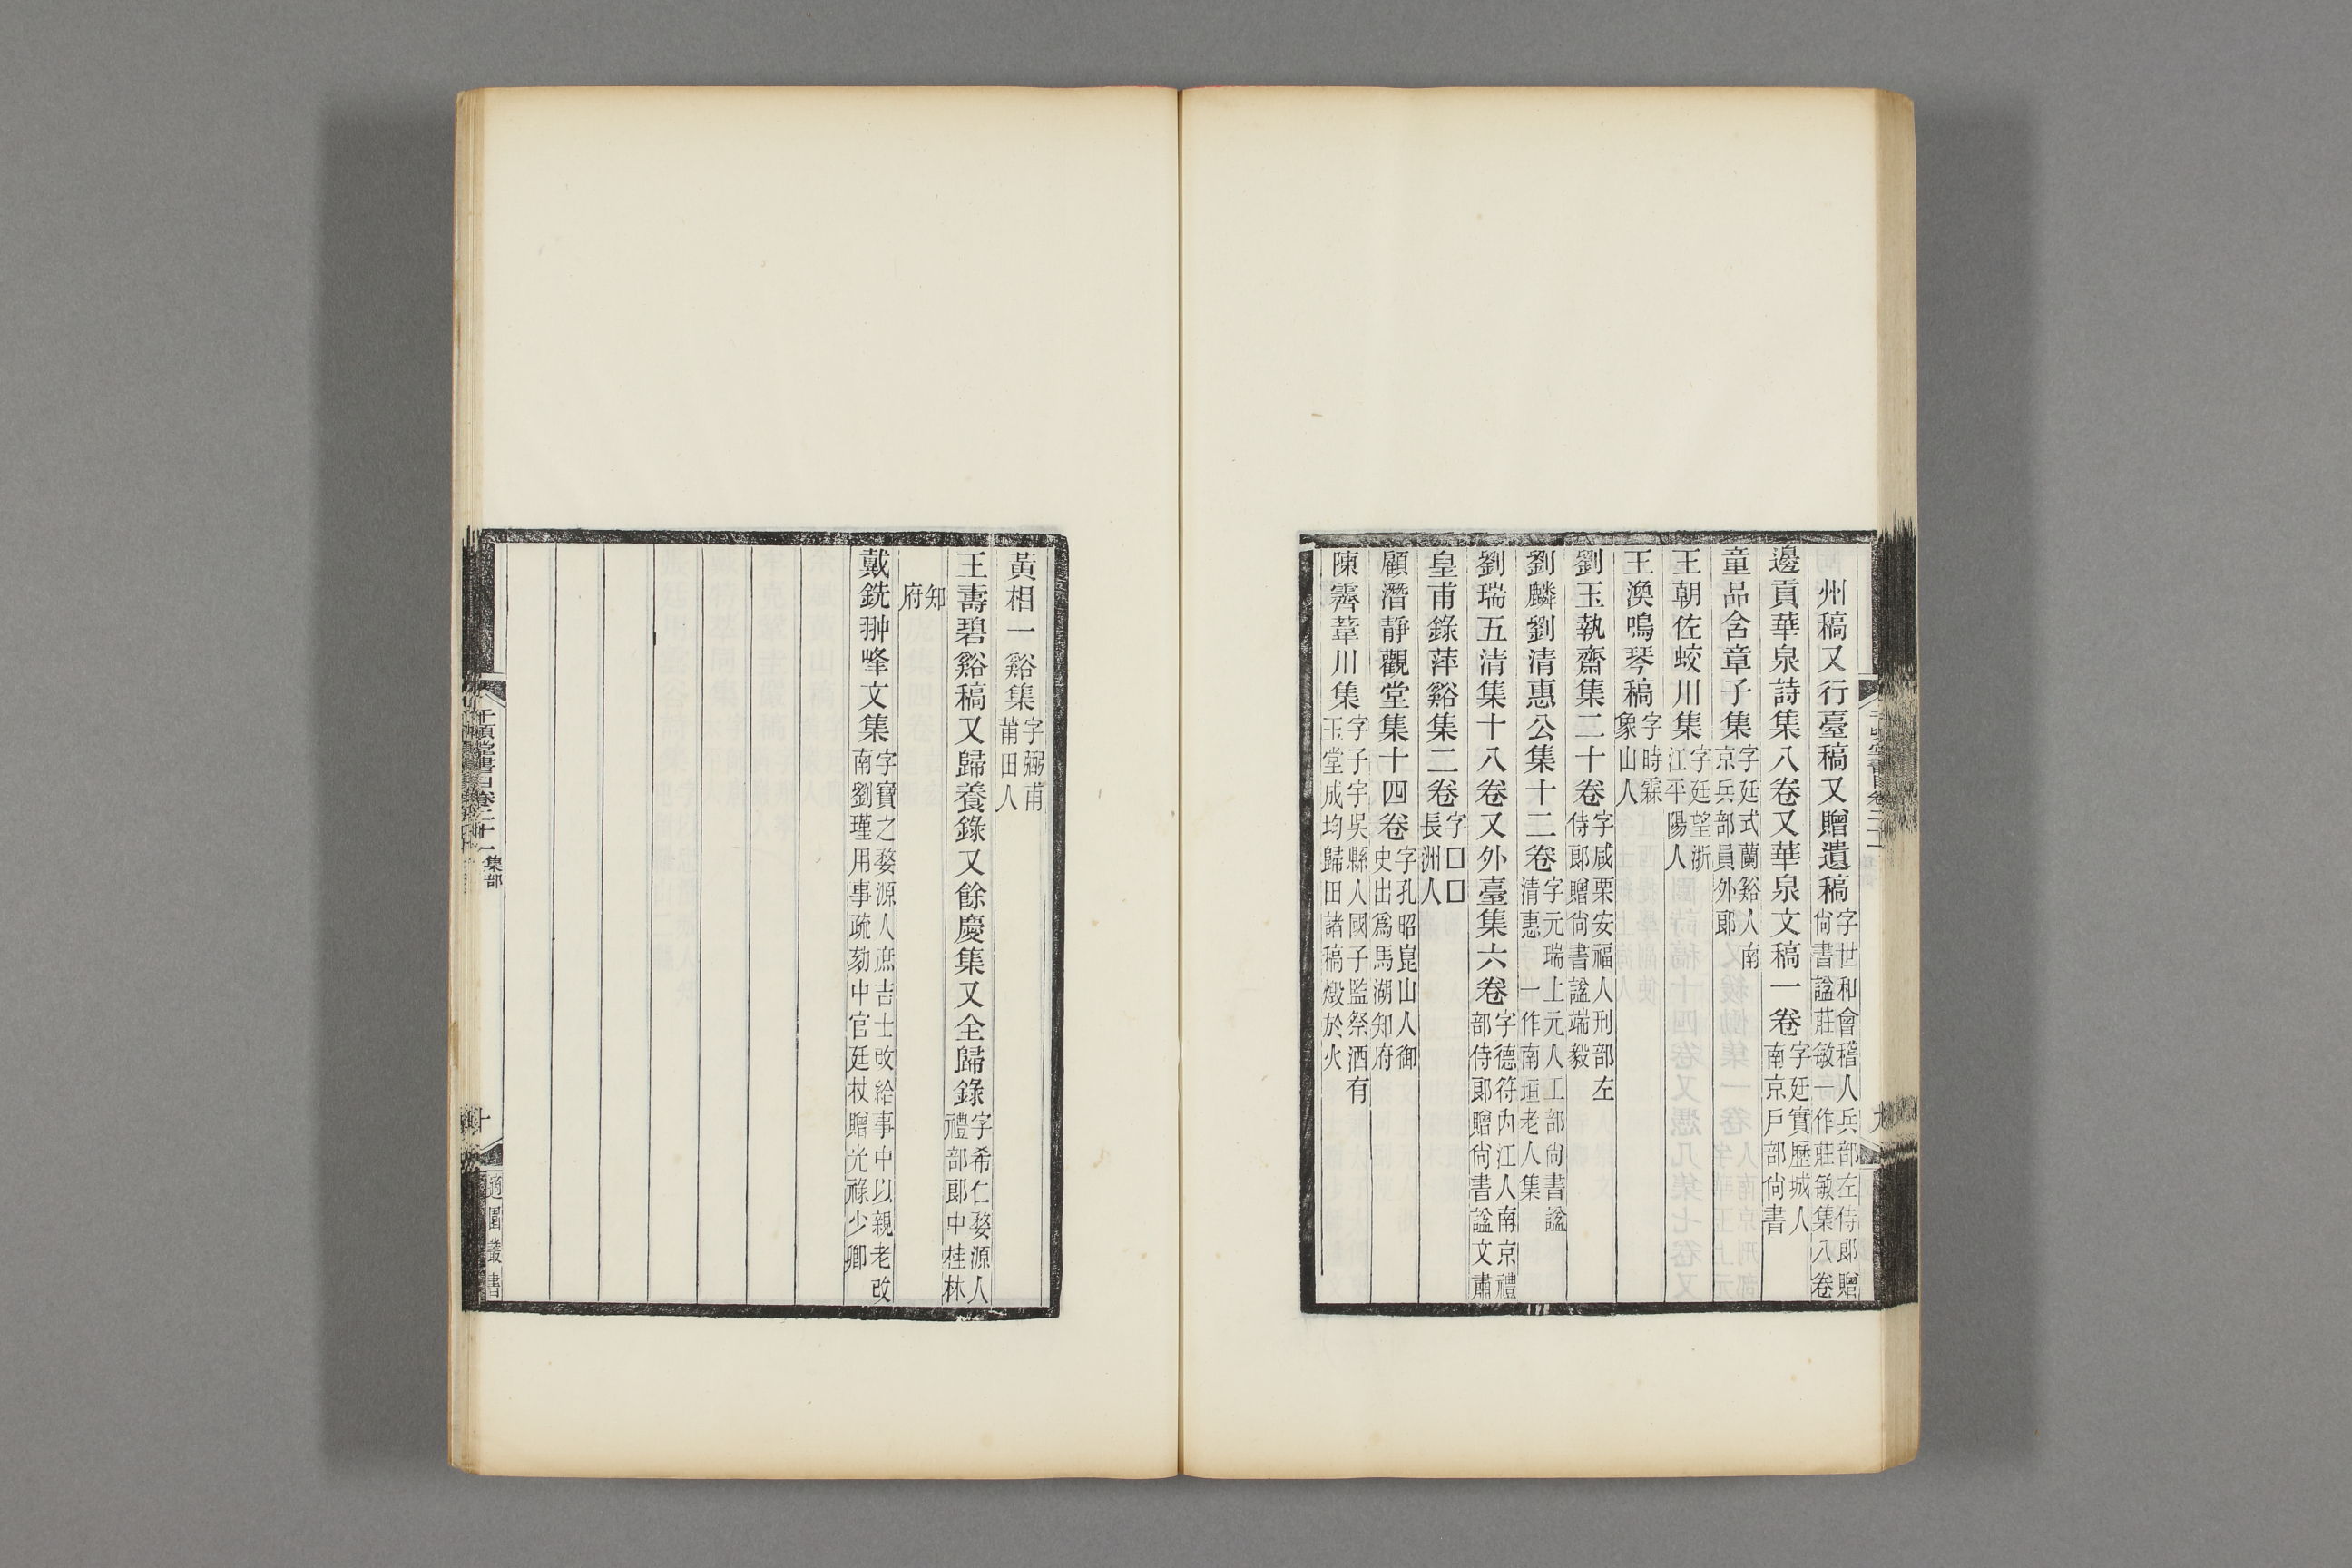 州稿又行臺稿又贈遺稿字世和會稽人兵部左侍郎贈尙書諡莊敏一作莊敏集八卷
邊貢華泉詩集八卷又華泉文稿一卷字廷實歷城人南京戶部尙書
童品含章子集字廷式蘭谿人南京兵部員外郎
王朝佐蛟川集字廷望浙江平陽人
王渙鳴琴稿字時霖象山人
劉玉執齋集二十卷字咸栗安福人刑部左侍郎贈尙書諡端毅
劉麟劉清惠公集十二卷字元瑞上元人工部尙書諡清惠一作南垣老人集
劉瑞五清集十八卷又外臺集六卷字德符內江人南京禮部侍郎贈尙書諡文肅
皇甫錄萍谿集二卷字□□長洲人
顧潛靜觀堂集十四卷字孔昭崑山人御史出爲馬湖知府
陳霽葦川集字子宇吳縣人國子監祭酒有玉堂成均歸田諸稿燬於火
黃相一谿集字弼甫莆田人
王壽碧谿稿又歸養錄又餘慶集又全歸錄字希仁婺源人禮部郎中桂林
知府
戴銑翀峰文集字寶之婺源人庶吉士改給事中以親老改南劉瑾用事疏劾中官廷杖贈光祿少卿
千頃堂書目卷二十一 集部
十
適園叢書